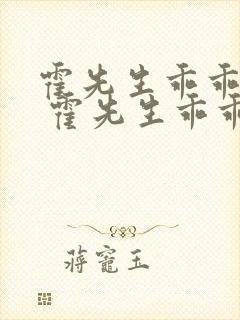 霍先生乖乖
霍先生乖乖
蒋寵玉